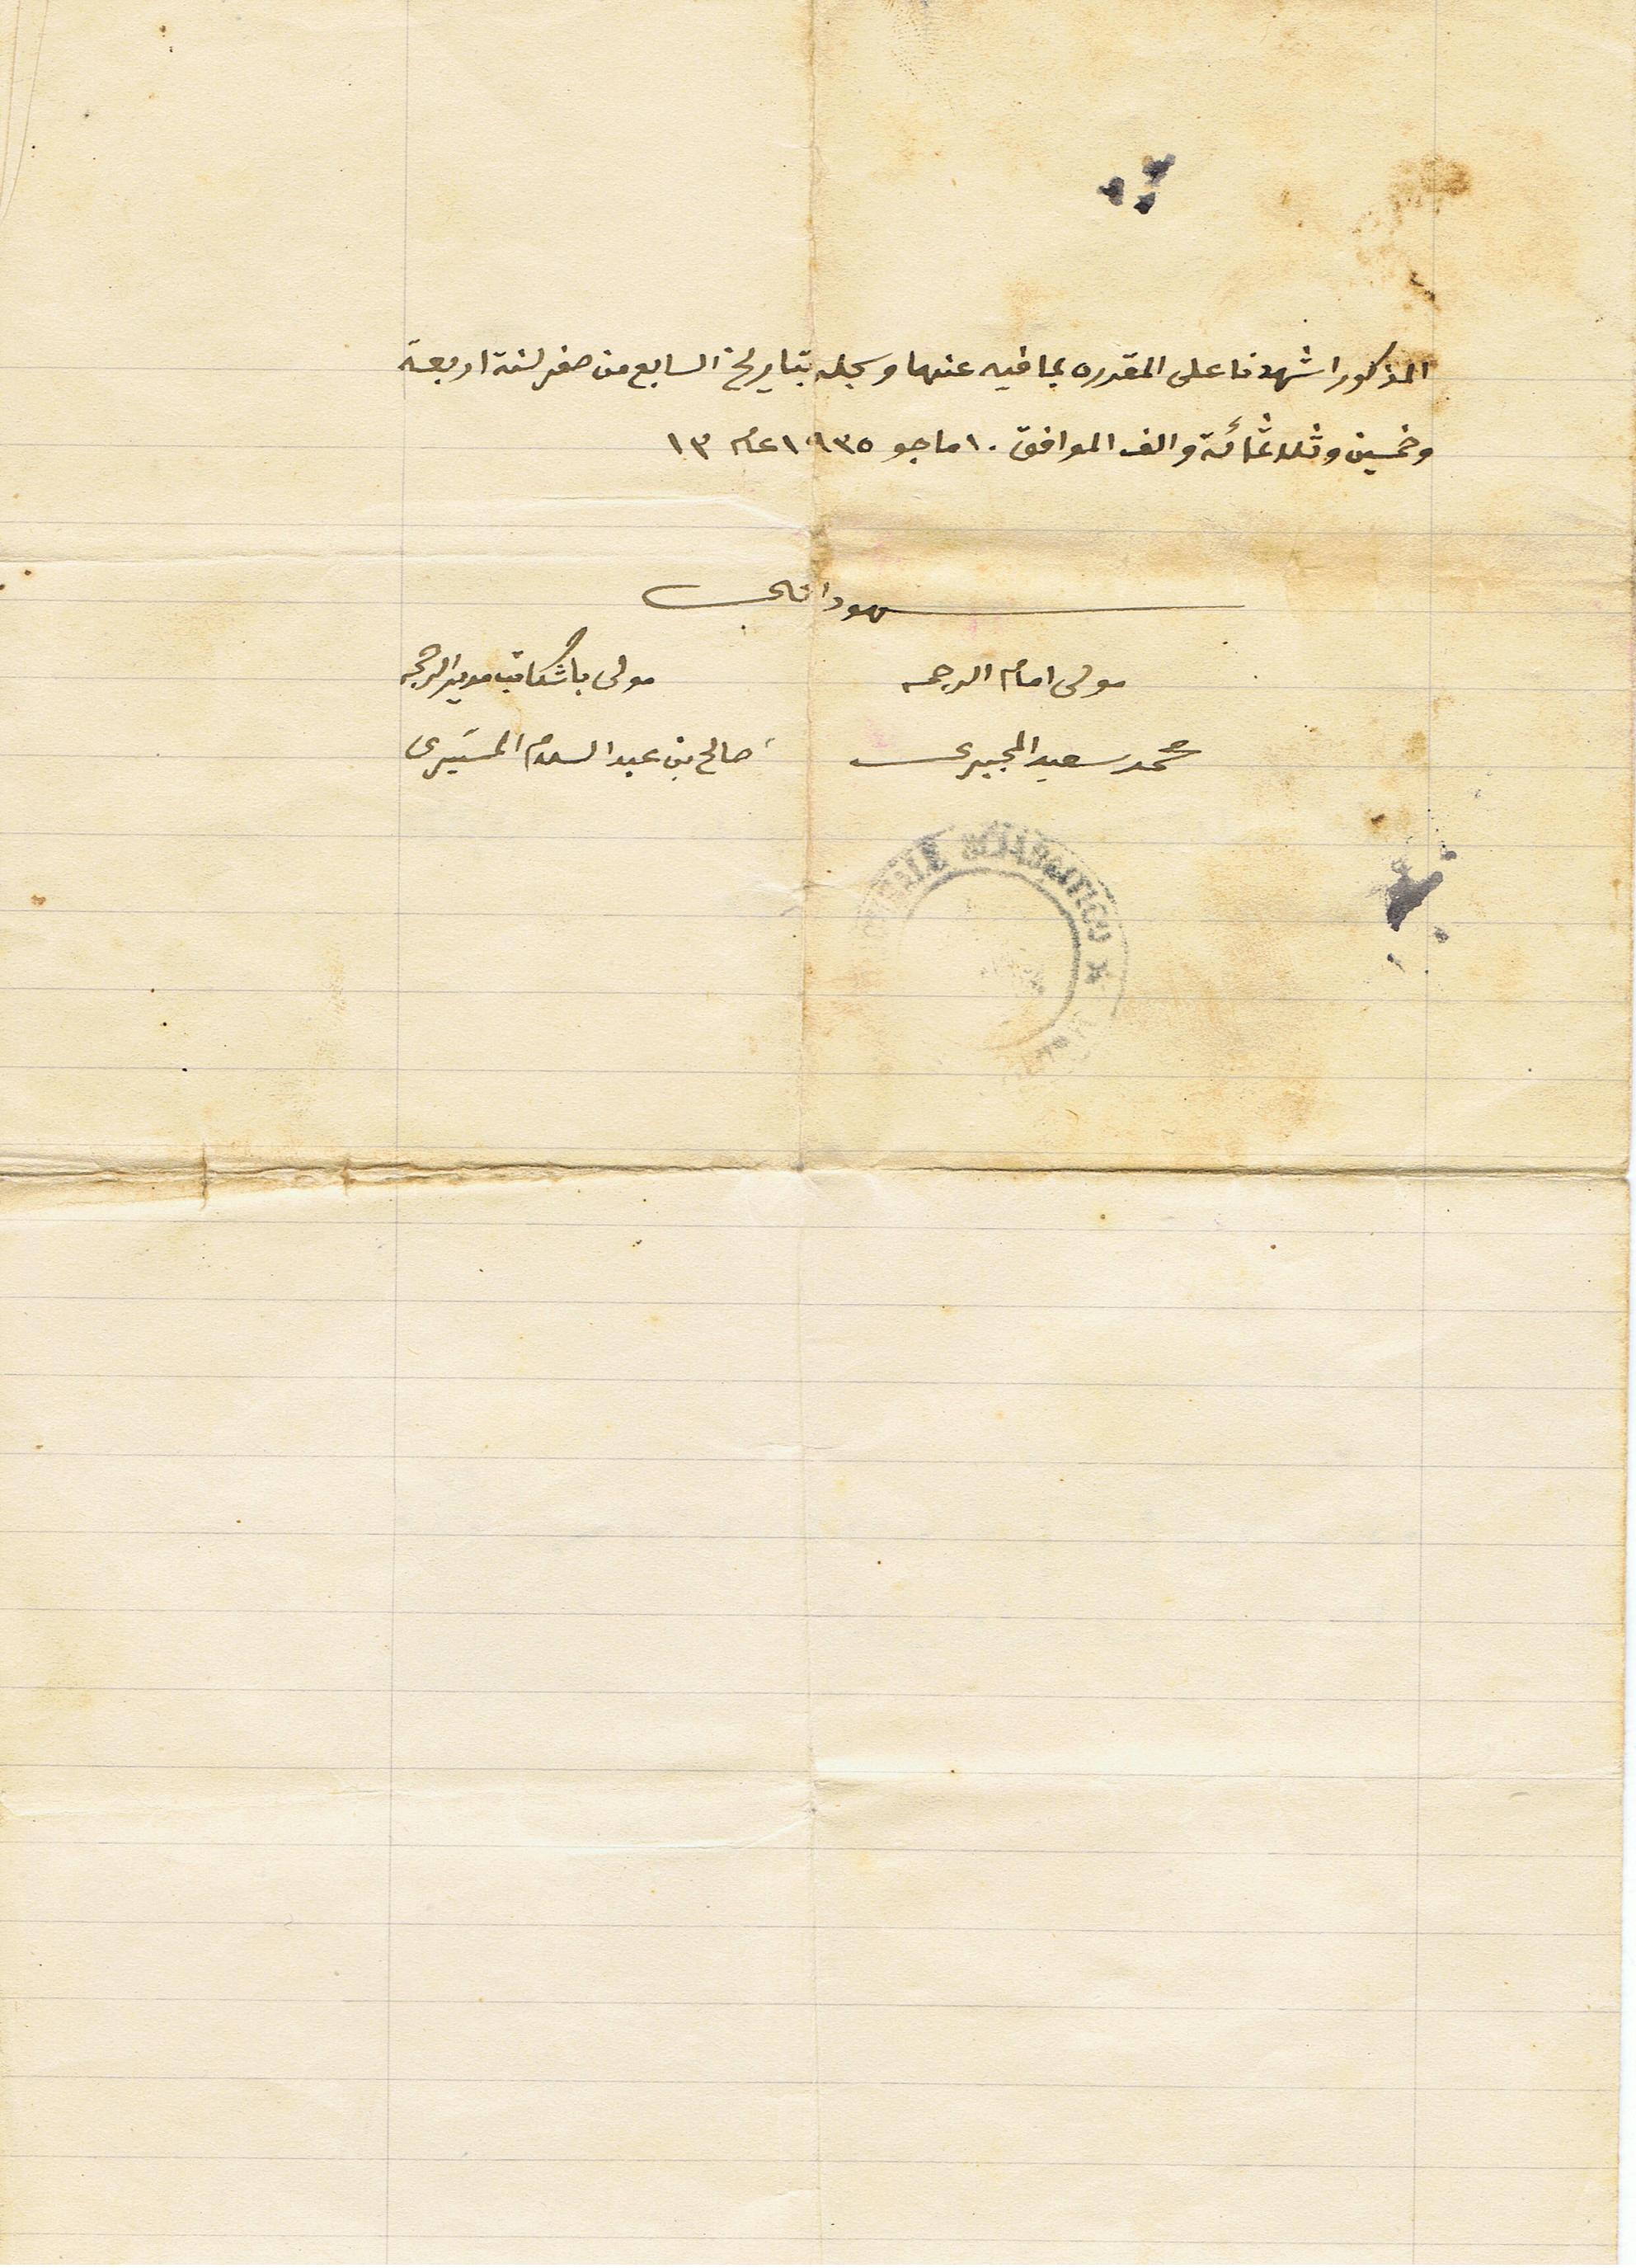 المذكور اشهدنا على المقرره بما فيه عنها وسجل بتاريخ السابع من صفر لسنة اربعة
وخمسين وثلاثمائة والف الموافق ١٠ ماجو ١٩٣٥ عام ١٣
شهود الحال
مولى امام الرحمه
مولى باشكاتب مدير الرحمه
محمد سعيد المجبرى
صالح بن عبد السلام المسيرى
TRIBUNALE SCIARAITICO